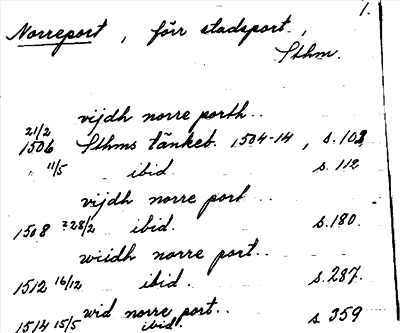 1.
Norreport, förr stadsport.,
Sthm.
vijdh norre porth..
21/2
1506 Sthms tänkeb. 1504-14, s. 103
" 11/5 ibid s. 112
vijdh norre port..
1508 28/2 ibid. s. 180.
wiidh norre port..
1512 16/12 ibid. s. 287.
wid norre port..
1514 15/5 ibid. s. 359